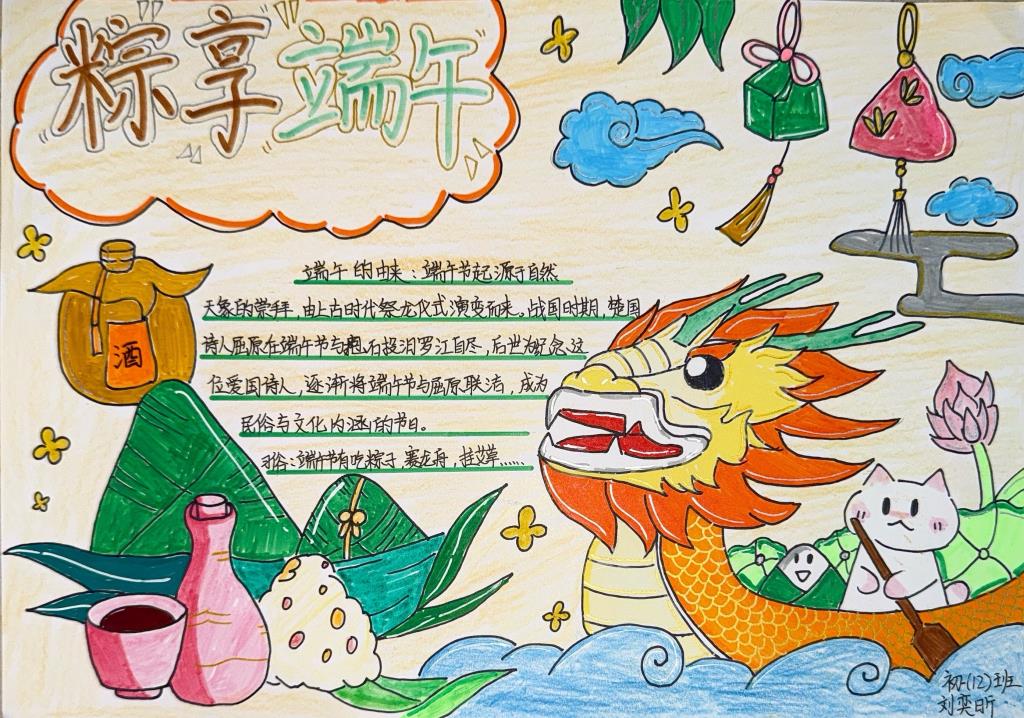 粽享端午
酒
端午的由来：端午节起源于自然
天象的崇拜，由上古时代祭龙仪式演变而来。战国时期，楚国
诗人屈原在端午节与抱石投汨罗江自尽，后世为纪念这
位爱国诗人，逐渐将端午节与屈原联洁，成为
民俗与文化内涵的节日。
习俗：端午节有吃粽子，赛龙舟，挂艾草……
初一(12)班
刘奕昕